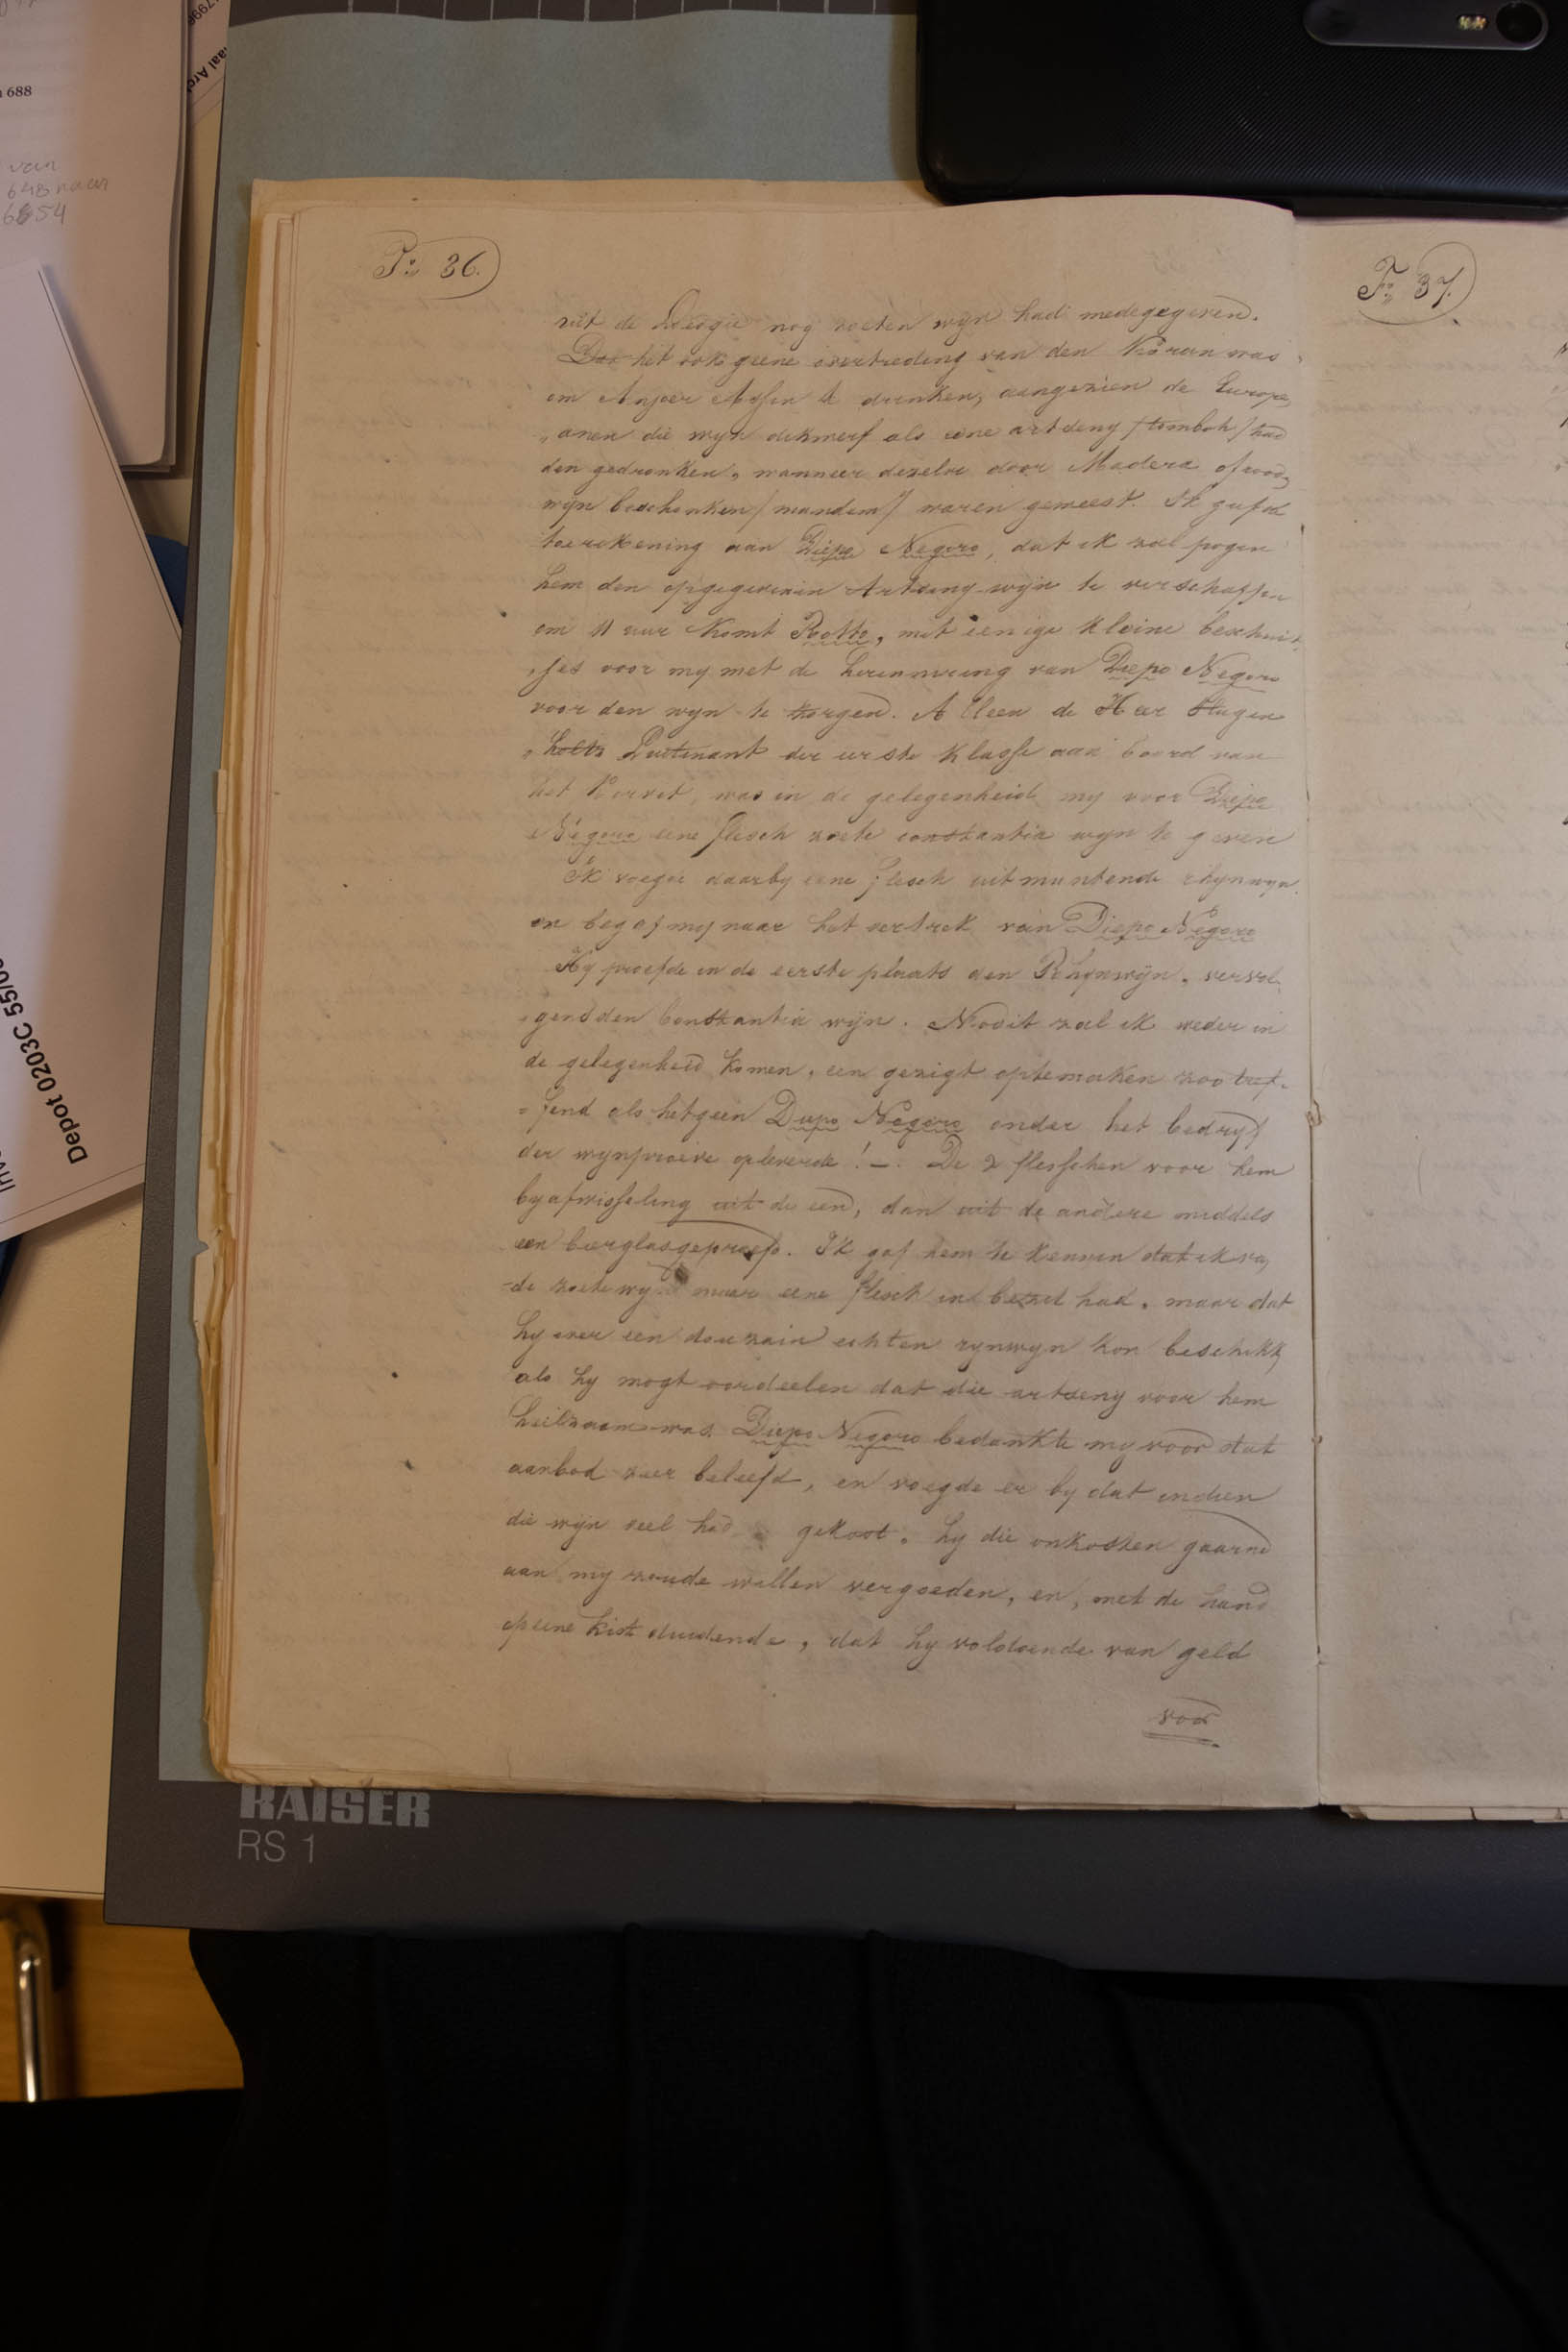 688
van
648 naar
6654
aal Arc
Depot 0203C 55/0
F: 36.
uit de Loogie nog zoeten wijn had medegegeven.
Dat het ook geene overtreding van den Koran was
om Anjoer Assen te drinken, aangezien de Europe
"anen die wijn dikwerf als eene artseny /tombok/ had
den gedronken, wanneer dezelve door Madera of rood
wijn beschonken /mandem/ waren geweest. Ik gaf de
toerekening aan Diepo Negoro, dat ik zal pogen
hem den opgegevenen Artseny wijn te verschaffen
om 11 uur komt Rotto, met eenige kleine beschuit
"jes voor my met de herinnering van Diepo Negoro
voor den wyn te zorgen. Alleen de Heer Stugen
"holtz Luitenant der eerste Klasse aan boord van
het Korvet, was in de gelegenheid my voor Diepo
Negoro eene flesch zoete constantia wyn te geven
Ik voegde daarby eene flesch uitmuntende rhynwyn.
en begaf my naar het vertrek van Diepo Negoro
Hy proefde in de eerste plaats den Rhynwyn, vervol
"gens den Constantia wijn. Nooit zal ik weder in
de gelegenheid komen, een gezigt optemaken zoo tref-
"fend als hetgeen Diepo Negoro onder het bedryf
der wynproeve opleverde! —. De 2 flesschen voor hem
by afwisseling uit de een, dan uit de andere middels
een bierglas geproefd. Ik gaf hem te kennen dat ik va
-de zoete wyn maar eene flesch in bezit had, maar dat
hy over een douzain echten rynwyn kon beschikk
als hy mogt oordeelen dat die artseny voor hem
heilzaam was. Diepo Negoro bedankte my voor dat
aanbod zeer beleefd, en voegde er by dat indien
die wijn veel had gekost, hy die onkosten gaarne
aan my zoude willen vergoeden, en, met de hand
op eene kist duidende, dat hy voldoende van geld
voor
F: 37.
KAISER
RS 1